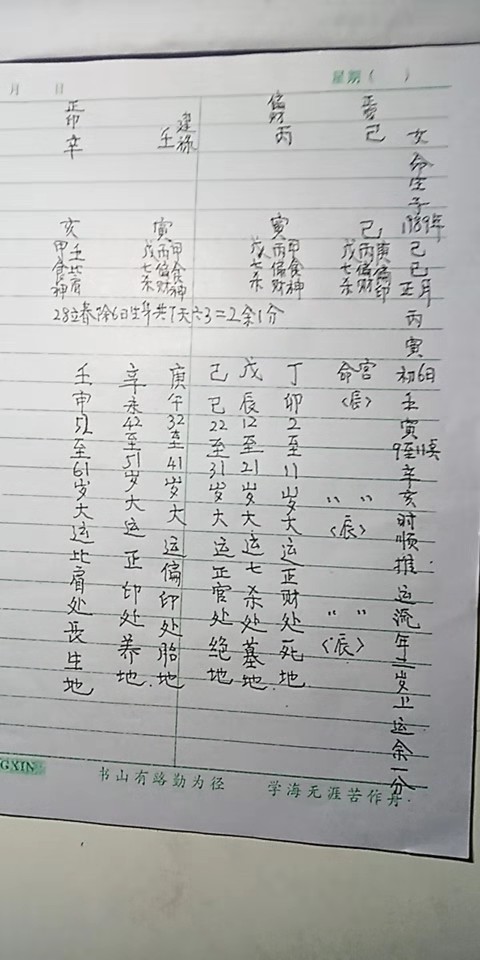 月 日 星期( )
女命生于1989年己巳正月丙寅初6日壬寅9至11点辛亥时顺推运流年二岁上运余一分
己
巳
庚偏印
丙偏财
戊七杀
偏财
丙
寅
甲食神
戊七杀
建禄
壬
寅
甲食神
丙偏财
戊七杀
正印
辛
亥
壬比肩
甲食神
28立春除6日生年共7天六3=2余1分
命宫〈辰〉
〃〃〈辰〉
〃〃〈辰〉
丁卯2至11岁大运正财处死地
戊辰12至21岁大运七杀处墓地
己巳22至31岁大运正官处绝地
庚午32至41岁大运偏印处胎地
辛未42至51岁大运正印处养地
壬申52至61岁大运比肩处长生地
GXIN 书山有路勤为径 学海无涯苦作舟